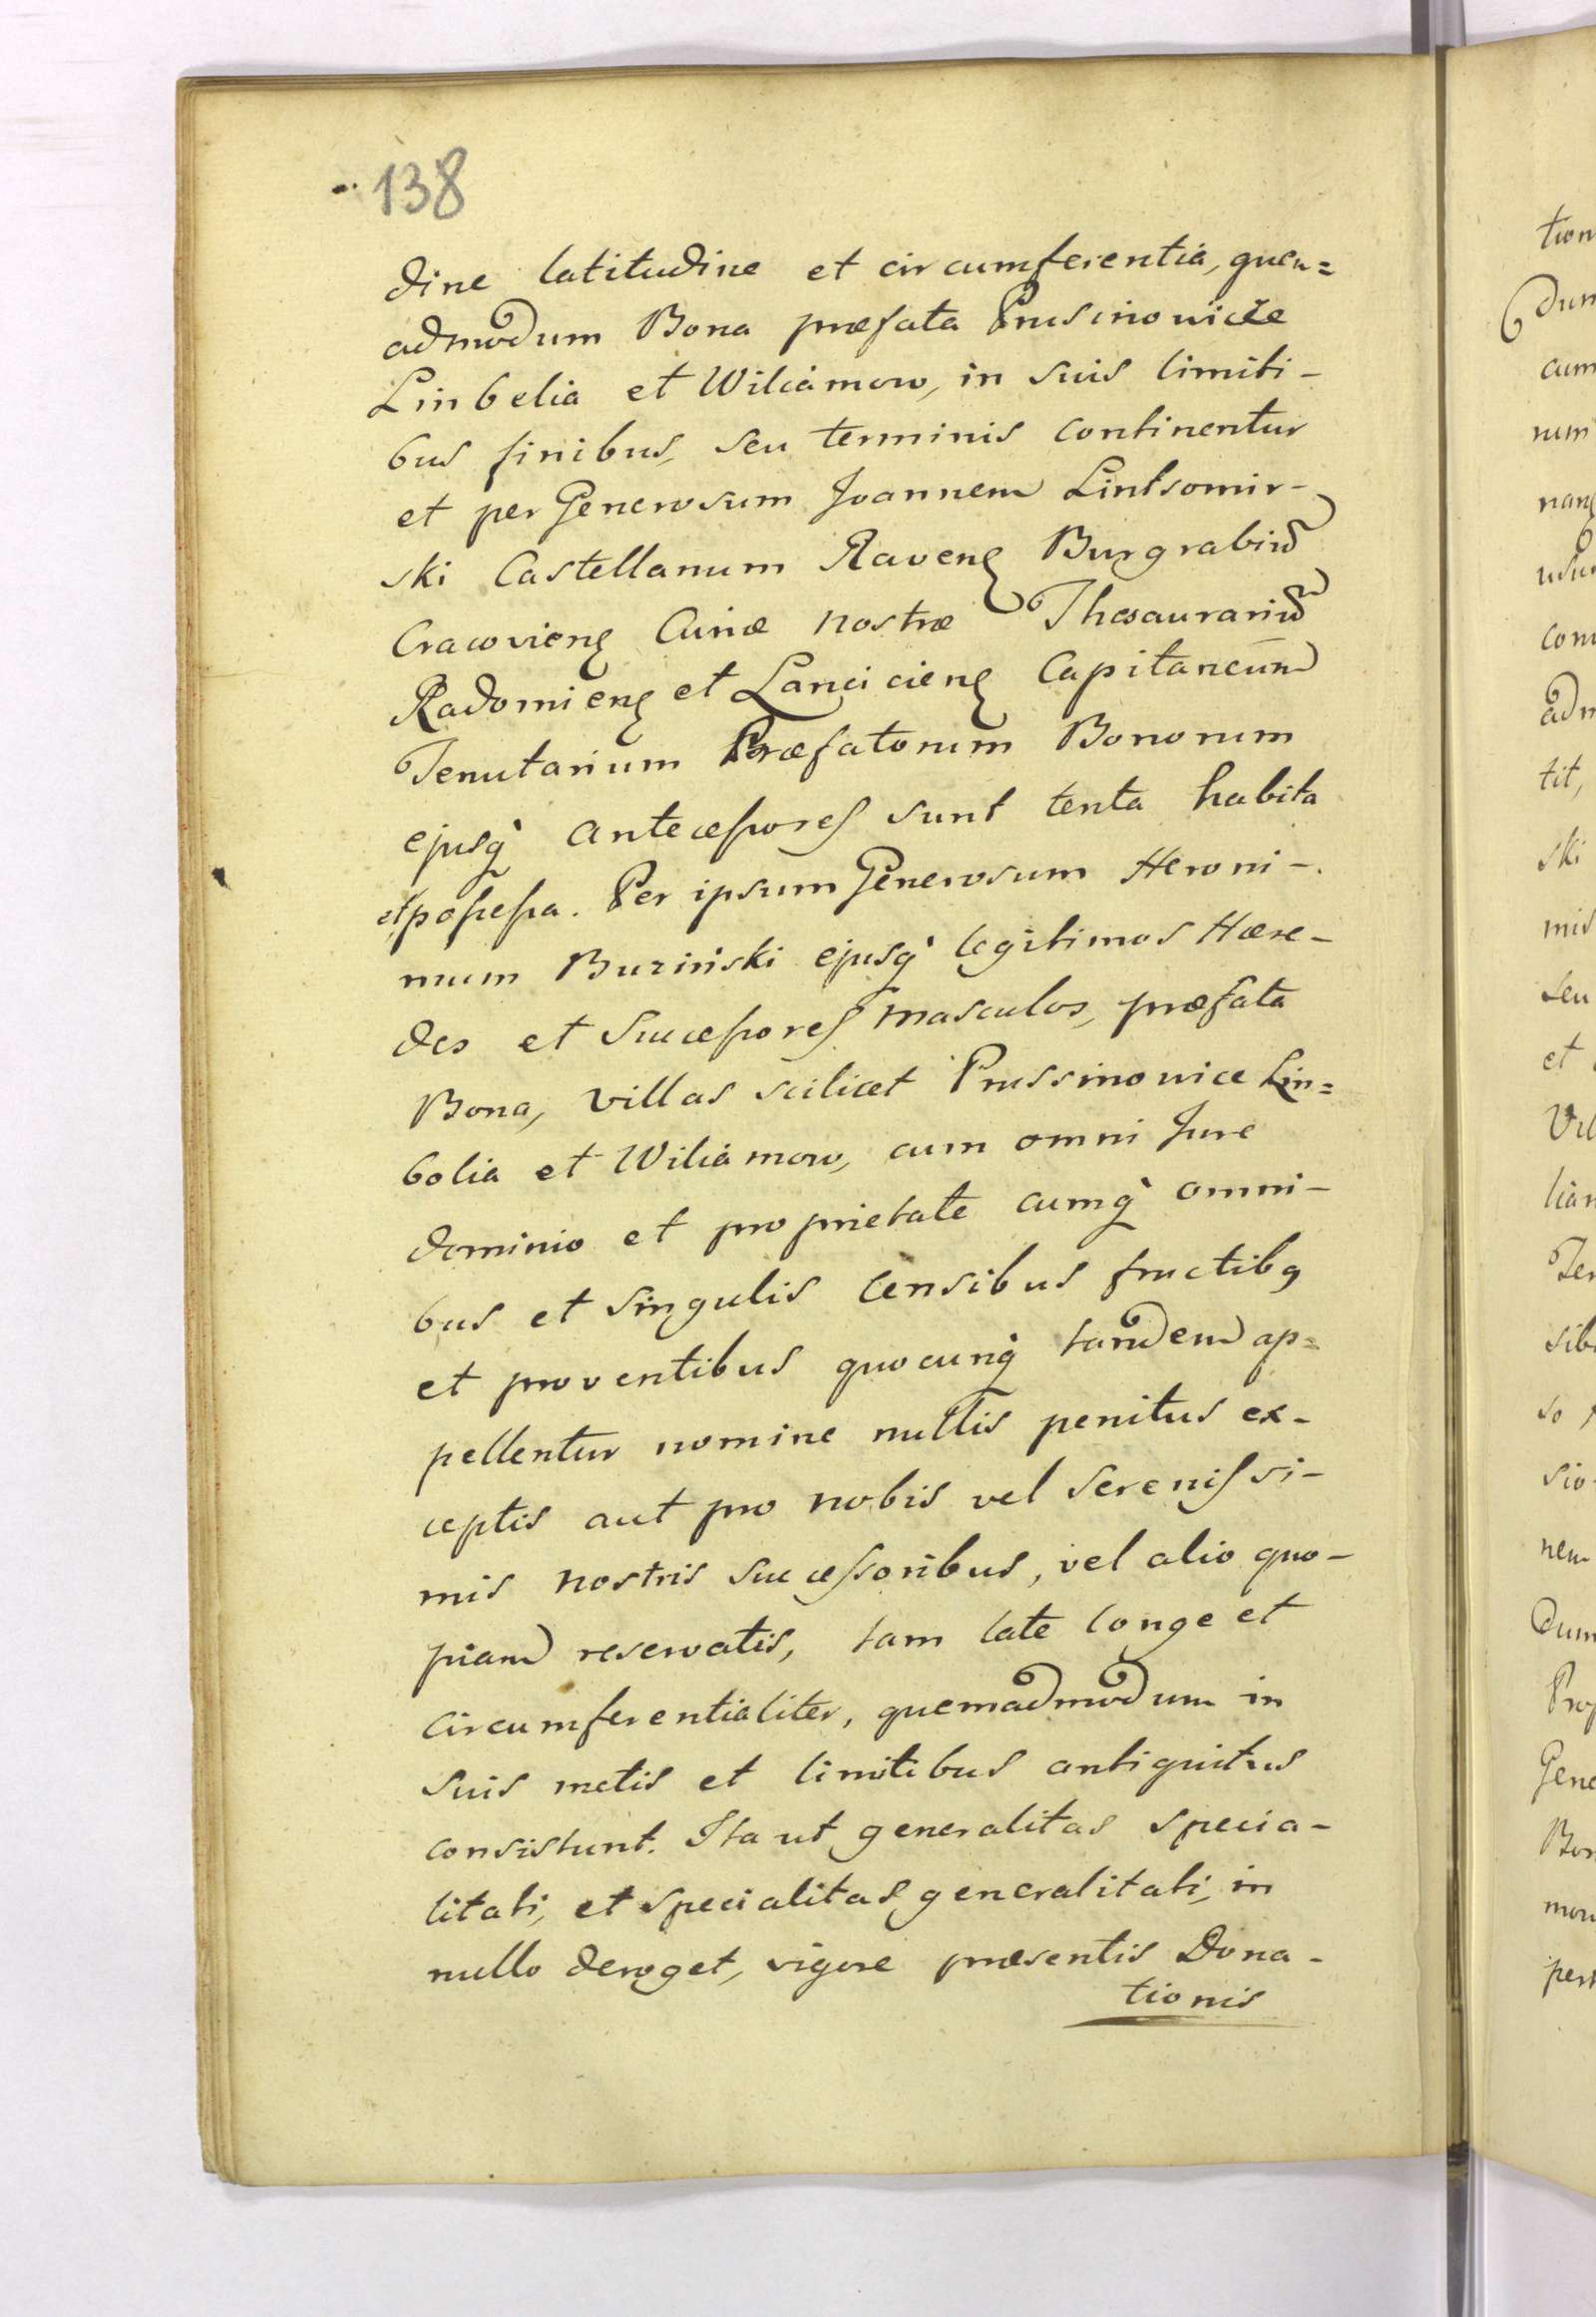 138
dine latitudine et circumferentia, quem=
admodum Bona præfata Prusinowicze
Linbelia et Wiliamow, in suis limiti-
bus finibus, seu terminis continentur
et per Generosum Joannem Lintsomir-
ski Castellanum Ravenę Burgrabiũ
Cracovienę Curiæ nostræ Thesaurariũ
Radomienę et Lancicienę Capitaneum
Tenutarium Præfatorum Bonorum
ejusq̀ antecessores sunt tenta habita
et possessa. Per ipsum Generosum Heroni-
mum Buziński ejusq̀ legitimos Hære-
des et Successores masculos, præfata
Bona, villas scilicet Prussinowice Lin=
bolia et Wiliamow, cum omni Jure
dominio et proprietate cumq̀ omni-
bus et singulis censibus fructibꝯ
et proventibus quocunq̀ tandem ap=
pellentur nomine nullis penitus ex-
ceptis aut pro nobis vel Serenissi-
mis nostris successoribus, vel alio quo-
piam reservatis, tam late longe et
circumferentialiter, quemadmodum in
suis metis et limitibus antiquitus
consistunt. Ita ut generalitas specia-
litati, et specialitas generalitati, in
nullo deroget, vigore præsentis Dona-
tionis